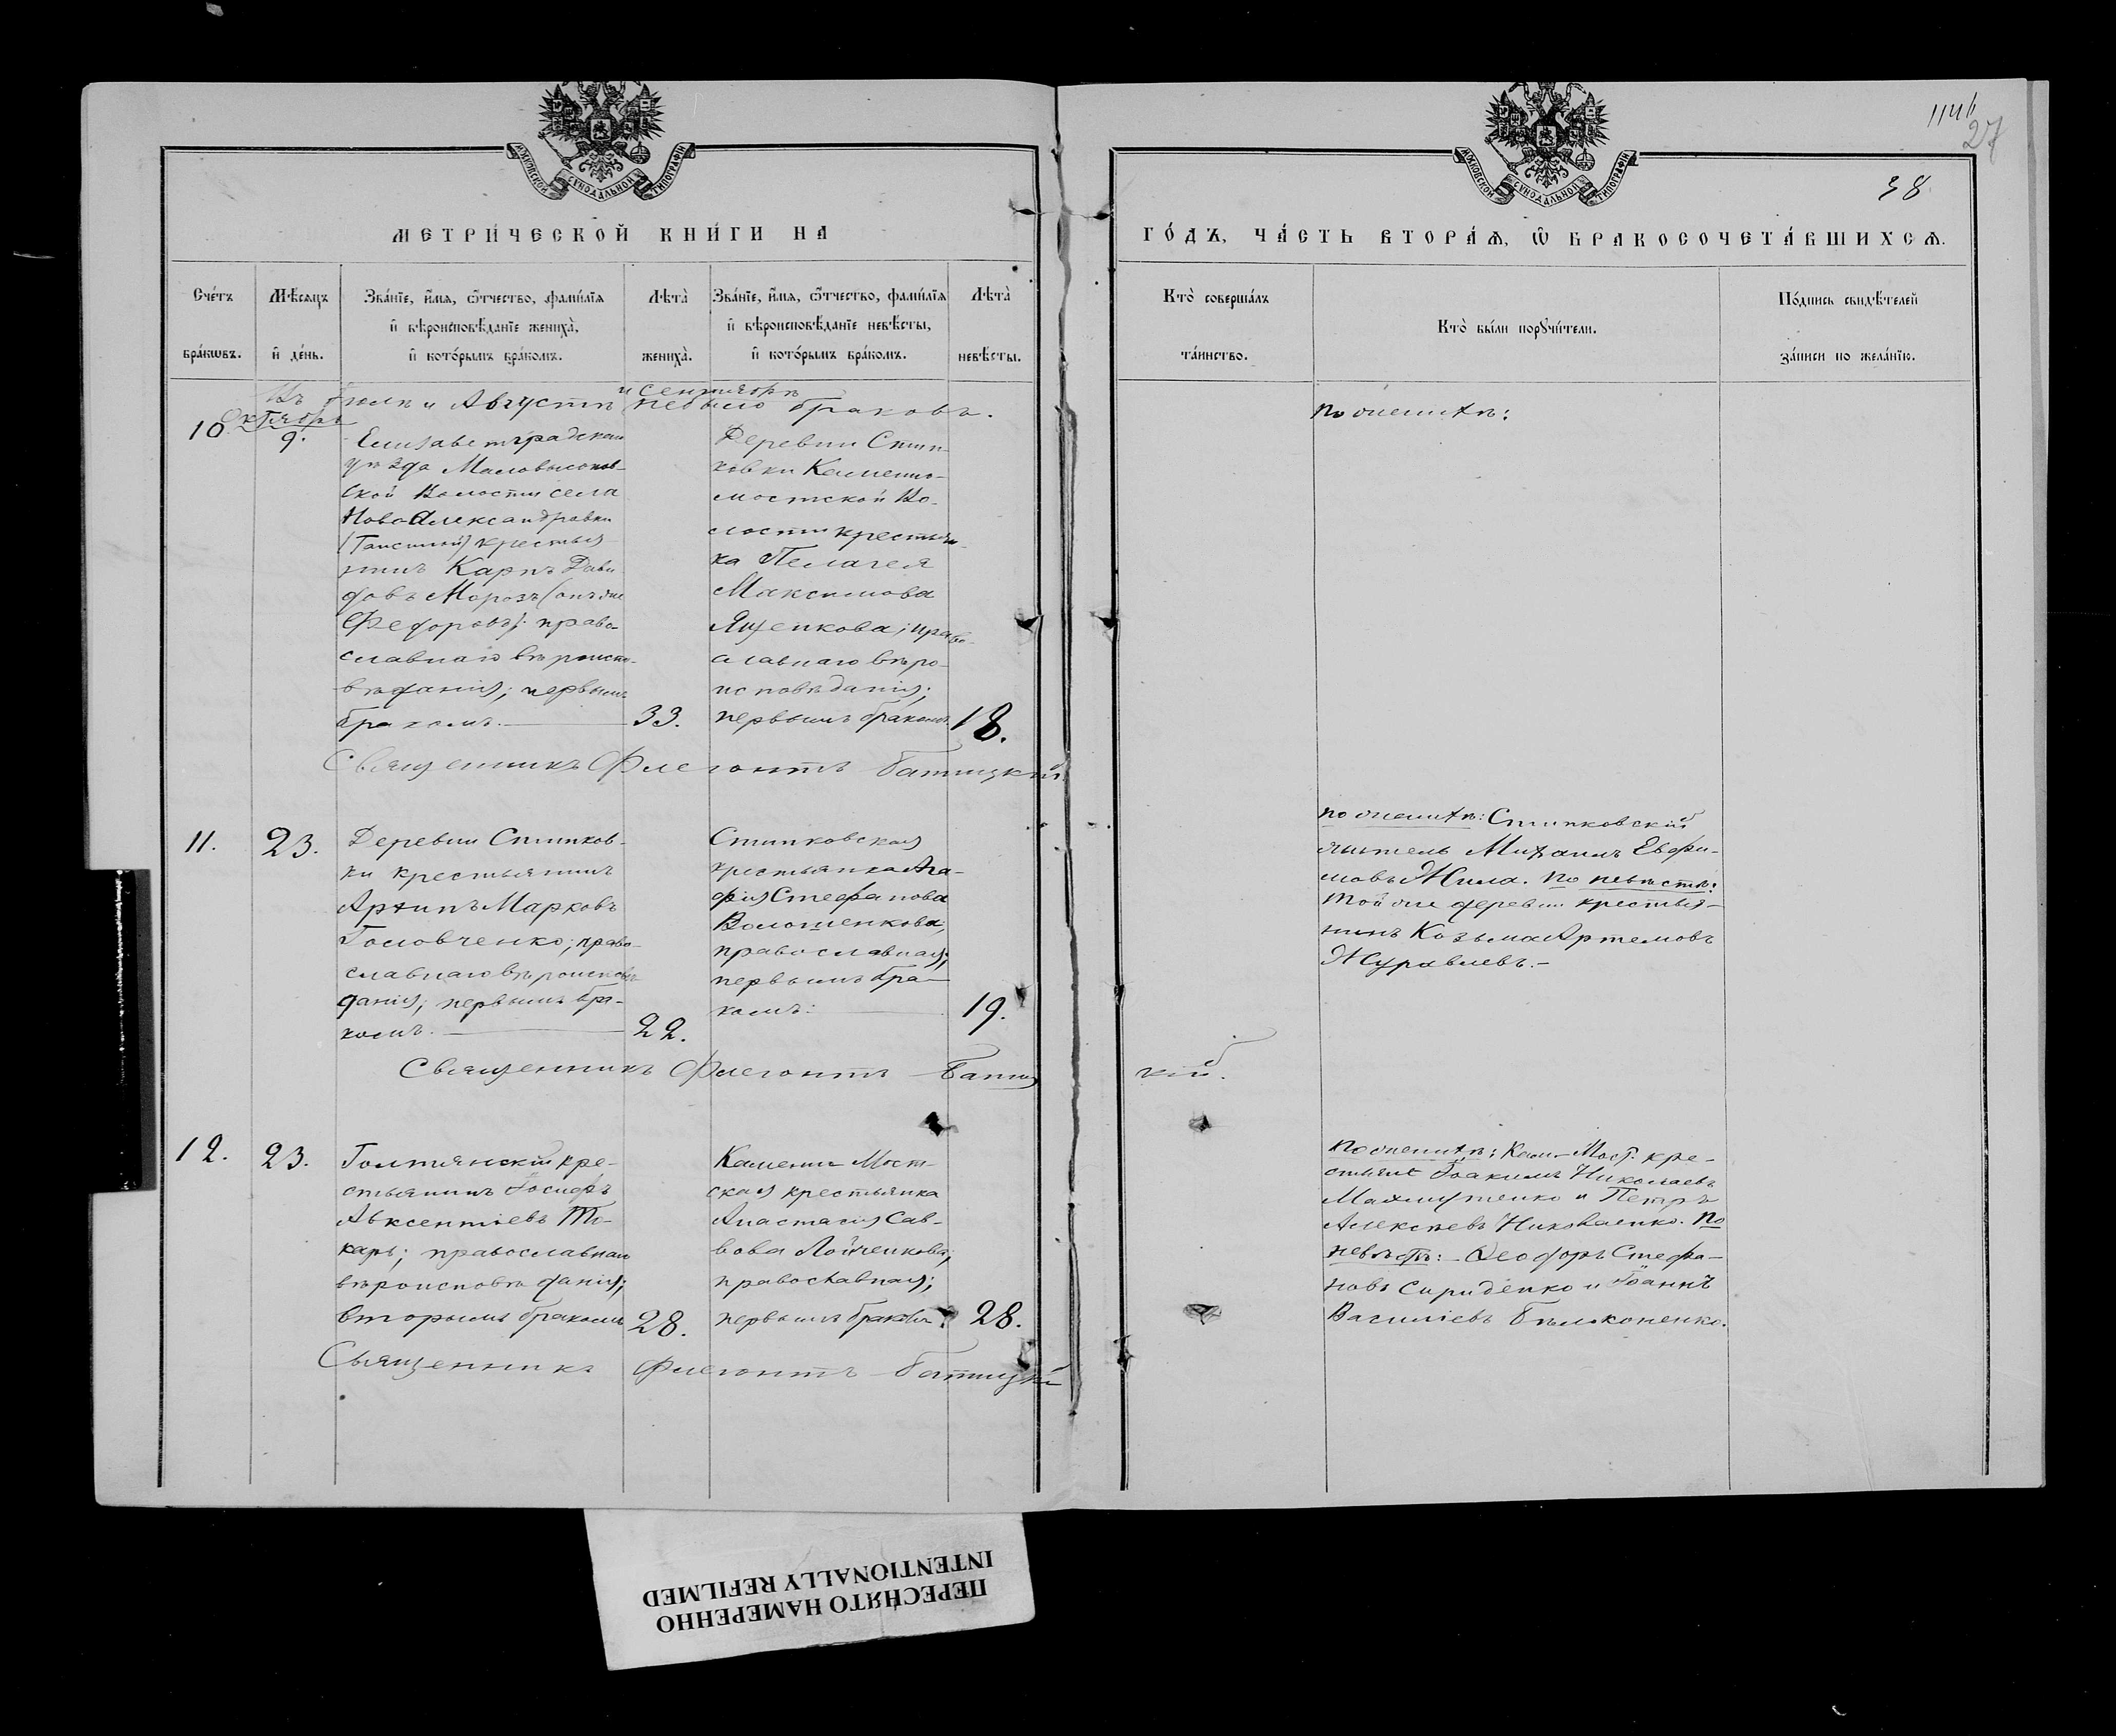 1146
27
38
МОСКОВСКОЙ СѴНОДАЛЬНОЙ ТИПОГРАФІИ
МОСКОВСКОЙ СѴНОДАЛЬНОЙ ТИПОГРАФІИ
МЕТРИ́ЧЕСКОЙ КНИ́ГИ НА
ГО́ДЪ, ЧА́СТЬ ВТОРА́Ѧ, Ѡ҆ БРАКОСОЧЕТА́ВШИХСѦ.
Сче́тъ бра́кѡвъ.
Мѣ́сѧцъ и҆ де́нь.
Зва́нїе, и҆́мѧ, ѻ҆́тчество, фами́лїѧ
и҆ вѣроисповѣ́данїе жениха̀,
и҆ кото́рымъ бра́комъ.
Лѣта̀ жениха̀.
Зва́нїе, и҆́мѧ, ѻ҆́тчество, фами́лїѧ
и҆ вѣроисповѣ́данїе невѣ́сты,
и҆ кото́рымъ бра́комъ.
Лѣта̀ невѣ́сты.
Кто̀ соверша́лъ та́инство.
Кто̀ бы́ли порꙋчи́тели.
По́дпись свидѣ́телей за́писи по жела́нїю.
и Сентябрѣ
Въ Іюлѣ и Августѣ небыло браковъ.
Октябрь
10.
9.
Елисаветградскаго
уѣзда Маловысков-
ской Волости села
НовоАлександровки
крестья
нинъ Карпъ Дави
довъ Морозъ (онъ же
Федоровъ); право-
славнаго вѣроиспо-
вѣданія; первымъ
бракомъ.
33.
Деревни Стип-
ковки Каменно-
мостской Во-
лости крестьян-
ка Пелагея
Максимова
Яценкова; право-
славнаго вѣро-
исповѣданія;
первымъ бракомъ.
18.
по женихѣ:
Священникъ Флегонтъ Батицкій
11.
23.
Деревни Стипков-
ки крестьянинъ
Архипъ Марковъ
Головченко; право-
славнаго вѣроисповѣ
данія; первымъ бра-
комъ.
22.
Стипковская
крестьянка Ага-
фія Стефанова
Волошенкова;
православная;
первымъ бра-
комъ.
19.
по женихѣ: Стипковскій
житель Михаилъ Евфи-
мовъ Жила. по невѣстѣ:
той же деревни крестья-
нинъ Козьма Артемовъ
Журавлевъ.-
Священникъ Флегонтъ Батиц
кій.
12.
23.
Голтянскій кре-
стьянинъ Іосифъ
Авксентіевъ То-
карь; православнаго
вѣроисповѣданія;
вторымъ бракомъ
28.
Каменно Мост-
ская крестьянка
Анастасія Сав-
вова Лойченкова;
православная;
первымъ бракомъ.
28.
по женихѣ: Кам.-Мост. кре-
стьяне Іоакимъ Николаевъ
Махмутенко и Петръ
Алексѣевъ Николаенко. по
невѣстѣ: Ѳеодоръ Стефа-
новъ Сириденко и Іоаннъ
Василіевъ Бѣлоконенко.
Священникъ Флегонтъ Батицкій
ПЕРЕСНЯТО НАМЕРЕННО
INTENTIONALLY REFILMED